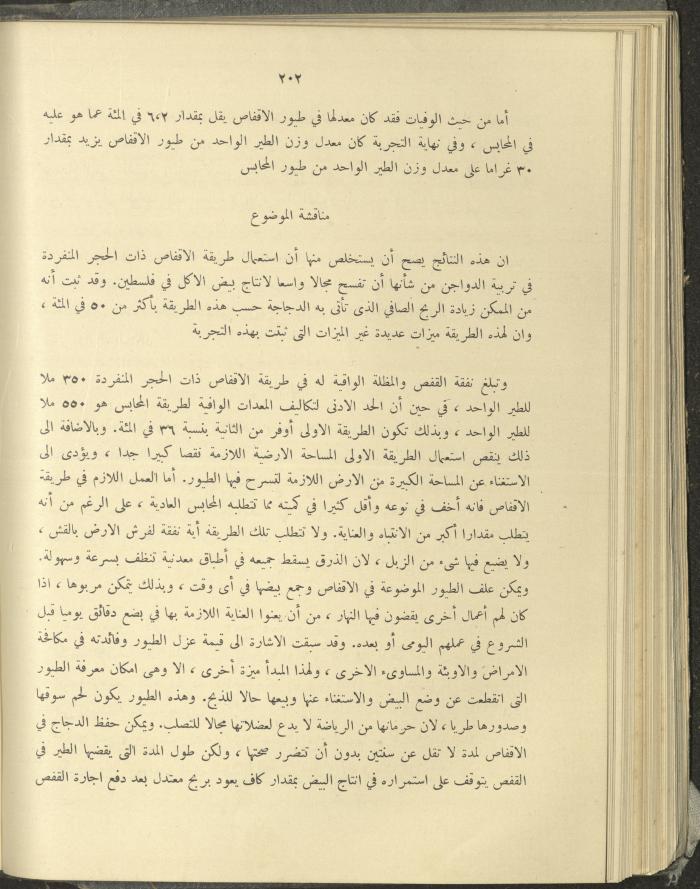 ٢٠٢
أما من حيث الوفيات فقد كان معدلها في طيور الاقفاص يقل بمقدار ٦،٢ في المئة عما هو عليه
في المحابس ، وفي نهاية التجربة كان معدل وزن الطير الواحد من طيور الاقفاص يزيد بمقدار
٣٠ غراما على معدل وزن الطير الواحد من طيور المحابس
مناقشة الموضوع
ان هذه النتائج يصح أن يستخلص منها أن استعمال طريقة الاقفاص ذات الحجر المنفردة
في تربية الدواجن من شأنها أن تفسح مجالا واسعا لانتاج بيض الاكل في فلسطين. وقد ثبت أنه
من الممكن زيادة الربح الصافي الذى تأتى به الدجاجة حسب هذه الطريقة بأكثر من ٥٠ في المئة ،
وان لهذه الطريقة ميزات عديدة غير الميزات التى ثبتت بهذه التجربة
وتبلغ نفقة القفص والمظلة الواقية له في طريقة الاقفاص ذات الحجر المنفردة ٣٥٠ ملا
للطير الواحد ، في حين أن الحد الادنى لتكاليف المعدات الوافية لطريقة المحابس هو ٥٥٠ ملا
للطير الواحد ، وبذلك تكون الطريقة الاولى أوفر من الثانية بنسبة ٣٦ في المئة. وبالاضافة الى
ذلك ينقص استعمال الطريقة الاولى المساحة الارضية اللازمة نقصا كبيرا جدا ، ويؤدى الى
الاستغناء عن المساحة الكبيرة من الارض اللازمة لتسرح فيها الطيور. أما العمل اللازم في طريقة
الاقفاص فانه أخف في نوعه وأقل كثيرا في كميته مما تتطلبه المحابس العادية ، على الرغم من أنه
يتطلب مقدارا أكبر من الانتباه والعناية. ولا تتطلب تلك الطريقة أية نفقة لفرش الارض بالقش ،
ولا يضيع فيها شىء من الزبل ، لان الذرق يسقط جميعه في أطباق معدنية تنظف بسرعة وسهولة.
ويمكن علف الطيور الموضوعة في الاقفاص وجمع بيضها في أى وقت ، وبذلك يتمكن مربوها ، اذا
كان لهم أعمال أخرى يقضون فيها النهار ، من أن يعنوا العناية اللازمة بها في بضع دقائق يوميا قبل
الشروع في عملهم اليومى أو بعده. وقد سبقت الاشارة الى قيمة عزل الطيور وفائدته في مكافحة
الامراض والاوبئة والمساوىء الاخرى ، ولهذا المبدأ ميزة أخرى ، الا وهى امكان معرفة الطيور
التى انقطعت عن وضع البيض والاستغناء عنها وبيعها حالا للذبح. وهذه الطيور يكون لحم سوقها
وصدورها طريا ، لان حرمانها من الرياضة لا يدع لعضلاتها مجالا للتصلب. ويمكن حفظ الدجاج في
الاقفاص لمدة لا تقل عن سنتين بدون أن تتضرر صحتها ، ولكن طول المدة التى يقضيها الطير في
القفص يتوقف على استمراره في انتاج البيض بمقدار كاف يعود بربح معتدل بعد دفع اجارة القفص